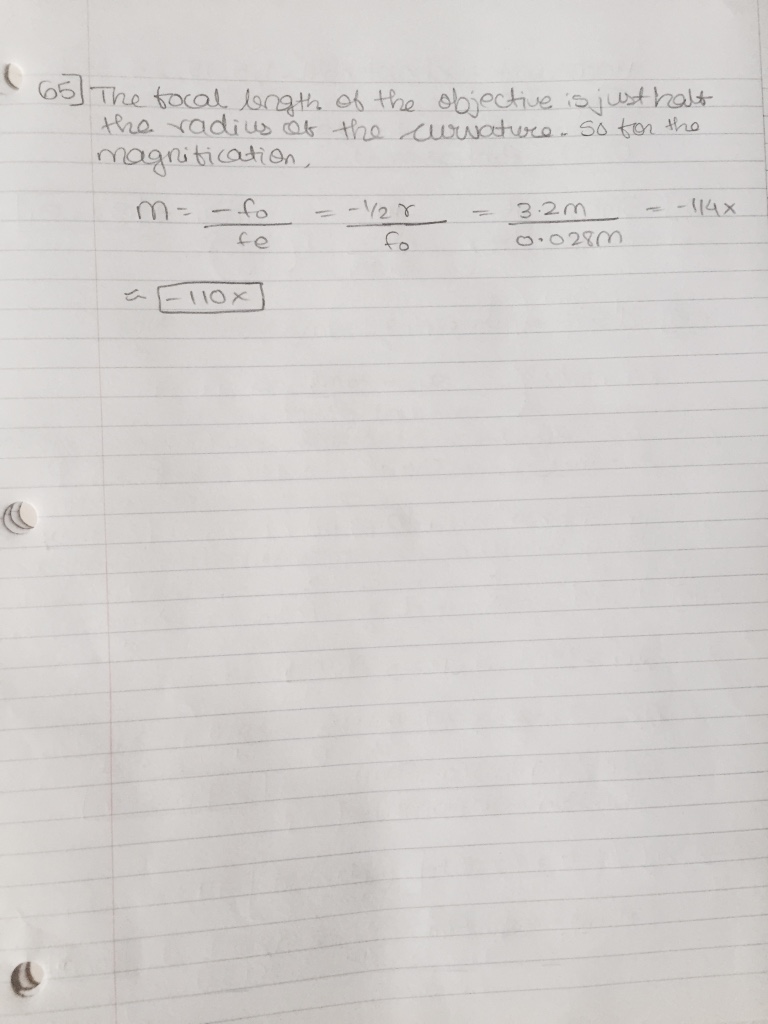 65] The focal length of the objective is just half
the radius of the curvature. So for the
magnification,
m = -fo/fe = -1/2 r/fo = 3.2m/0.028m = -114x
≈ -110x